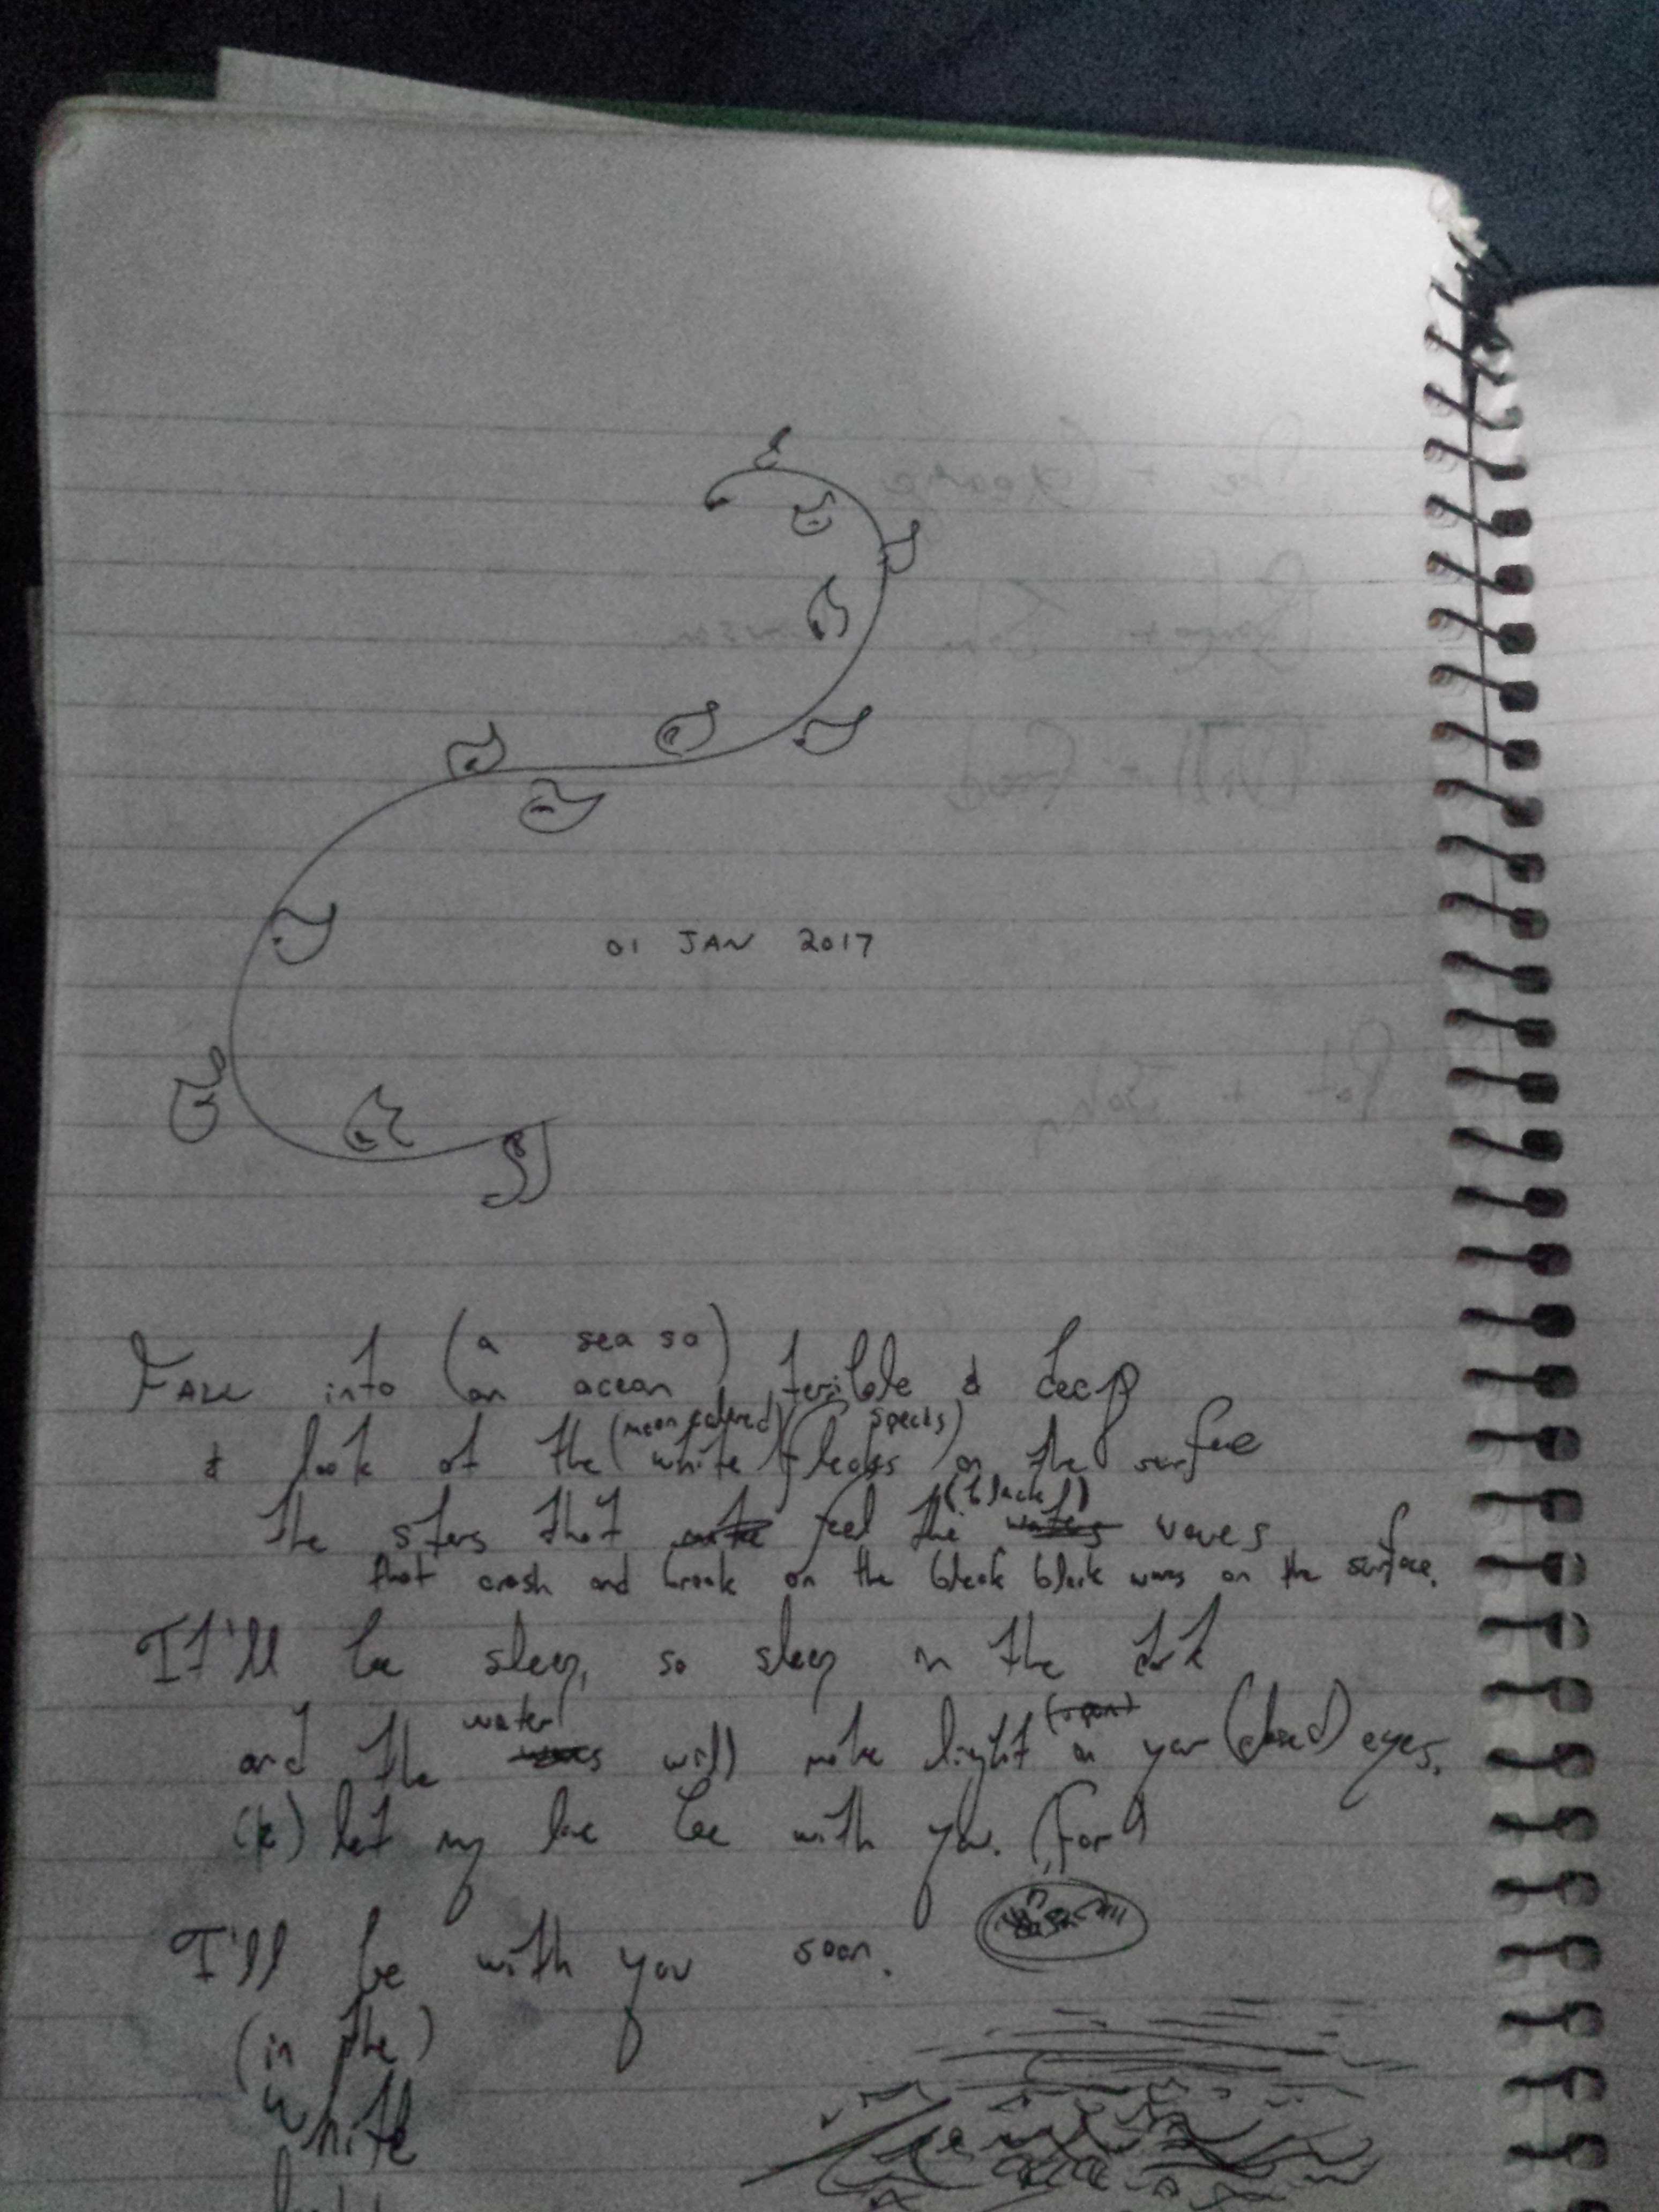 01 JAN 2017
FALL into (a sea so) terrible & deep
(an ocean)
& look at the (moon colored) (specks) on the surface
white flecks
the stars that feel the (black) waters waves
that crash and break on the bleak black waves on the surface.
It'll be sleep, so sleep in the dark
and the water waves will make light (open) on your (closed) eyes.
let my love be with you. (for)
I'll be with you soon.
(in the)
white